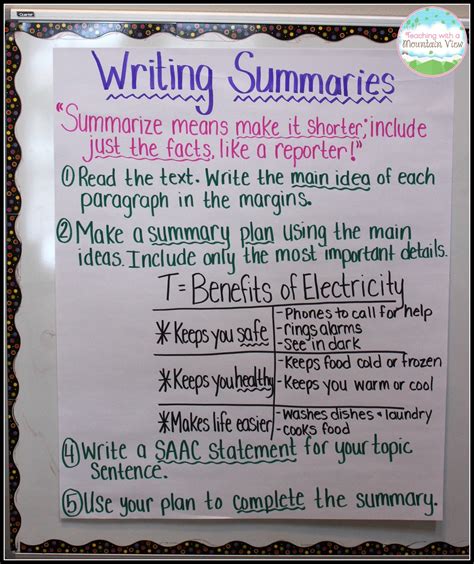 Quartet
Teaching with a
Mountain View
Writing Summaries
"Summarize means make it shorter; include
just the facts, like a reporter!"
① Read the text. Write the main idea of each
paragraph in the margins.
② Make a summary plan using the main
ideas. Include only the most important details.
T = Benefits of Electricity
*Keeps you safe
- Phones to call for help
- rings alarms
- see in dark
*Keeps you healthy
- Keeps food cold or frozen
- Keeps you warm or cool
*Makes life easier
- washes dishes + laundry
- cooks food
④ Write a SAAC statement for your topic
sentence.
⑤ Use your plan to complete the summary.